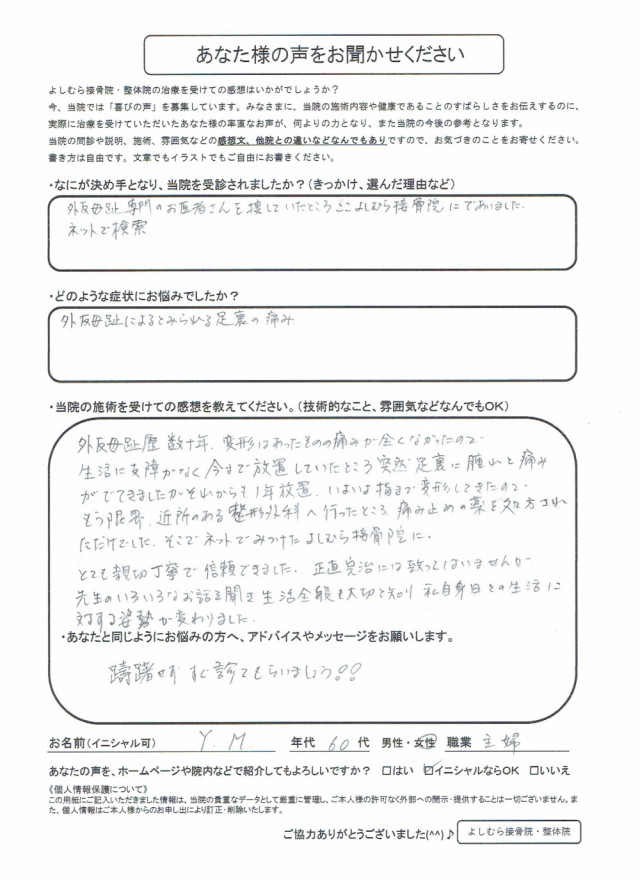 あなた様の声をお聞かせください
よしむら接骨院・整体院の治療を受けての感想はいかがでしょうか?
今、当院では「喜びの声」を募集しています。みなさまに、当院の施術内容や健康であることのすばらしさをお伝えするのに、
実際に治療を受けていただいたあなた様の率直なお声が、何よりの力となり、また当院の今後の参考となります。
当院の問診や説明、施術、雰囲気などの感想文、他院との違いなどなんでもありですので、お気づきのことをお寄せください。
書き方は自由です。文章でもイラストでもご自由にお書きください。
・なにが決め手となり、当院を受診されましたか?(きっかけ、選んだ理由など)
外反母趾専門のお医者さんを捜していたところここよしむら接骨院にであいました。
ネットで検索
・どのような症状にお悩みでしたか?
外反母趾によるとみられる足裏の痛み
・当院の施術を受けての感想を教えてください。(技術的なこと、雰囲気などなんでもOK)
外反母趾歴 数十年、変形はあったものの痛みが全くなかったので
生活に支障がなく 今まで放置していたところ 突然 足裏に 腫れと痛み
がでてきましたがそれからも1年放置、いよいよ指まで変形してきたので
もう限界、近所のある整形外科へ行ったところ 痛み止めの薬を処方され
ただけでした、そこでネットでみつけたよしむら接骨院に。
とても親切丁寧で信頼できました。正直完治には致ってはいませんが
先生のいろいろなお話を聞き 生活全般も大切と知り 私自身日々の生活に
対する姿勢が変わりました。
・あなたと同じようにお悩みの方へ、アドバイスやメッセージをお願いします。
躊躇せず すぐ診てもらいましょう!!
お名前(イニシャル可) Y.M 年代 60代 男性・女性 職業 主婦
あなたの声を、ホームページや院内などで紹介してもよろしいですか? □はい ☑イニシャルならOK □いいえ
《個人情報保護について》
この用紙にご記入いただきました情報は、当院の貴重なデータとして厳重に管理し、ご本人様の許可なく外部への開示・提供することは一切ございません。ま
た、個人情報はご本人様からのお申し出により訂正・削除いたします。
ご協力ありがとうございました(^^)♪ よしむら接骨院・整体院